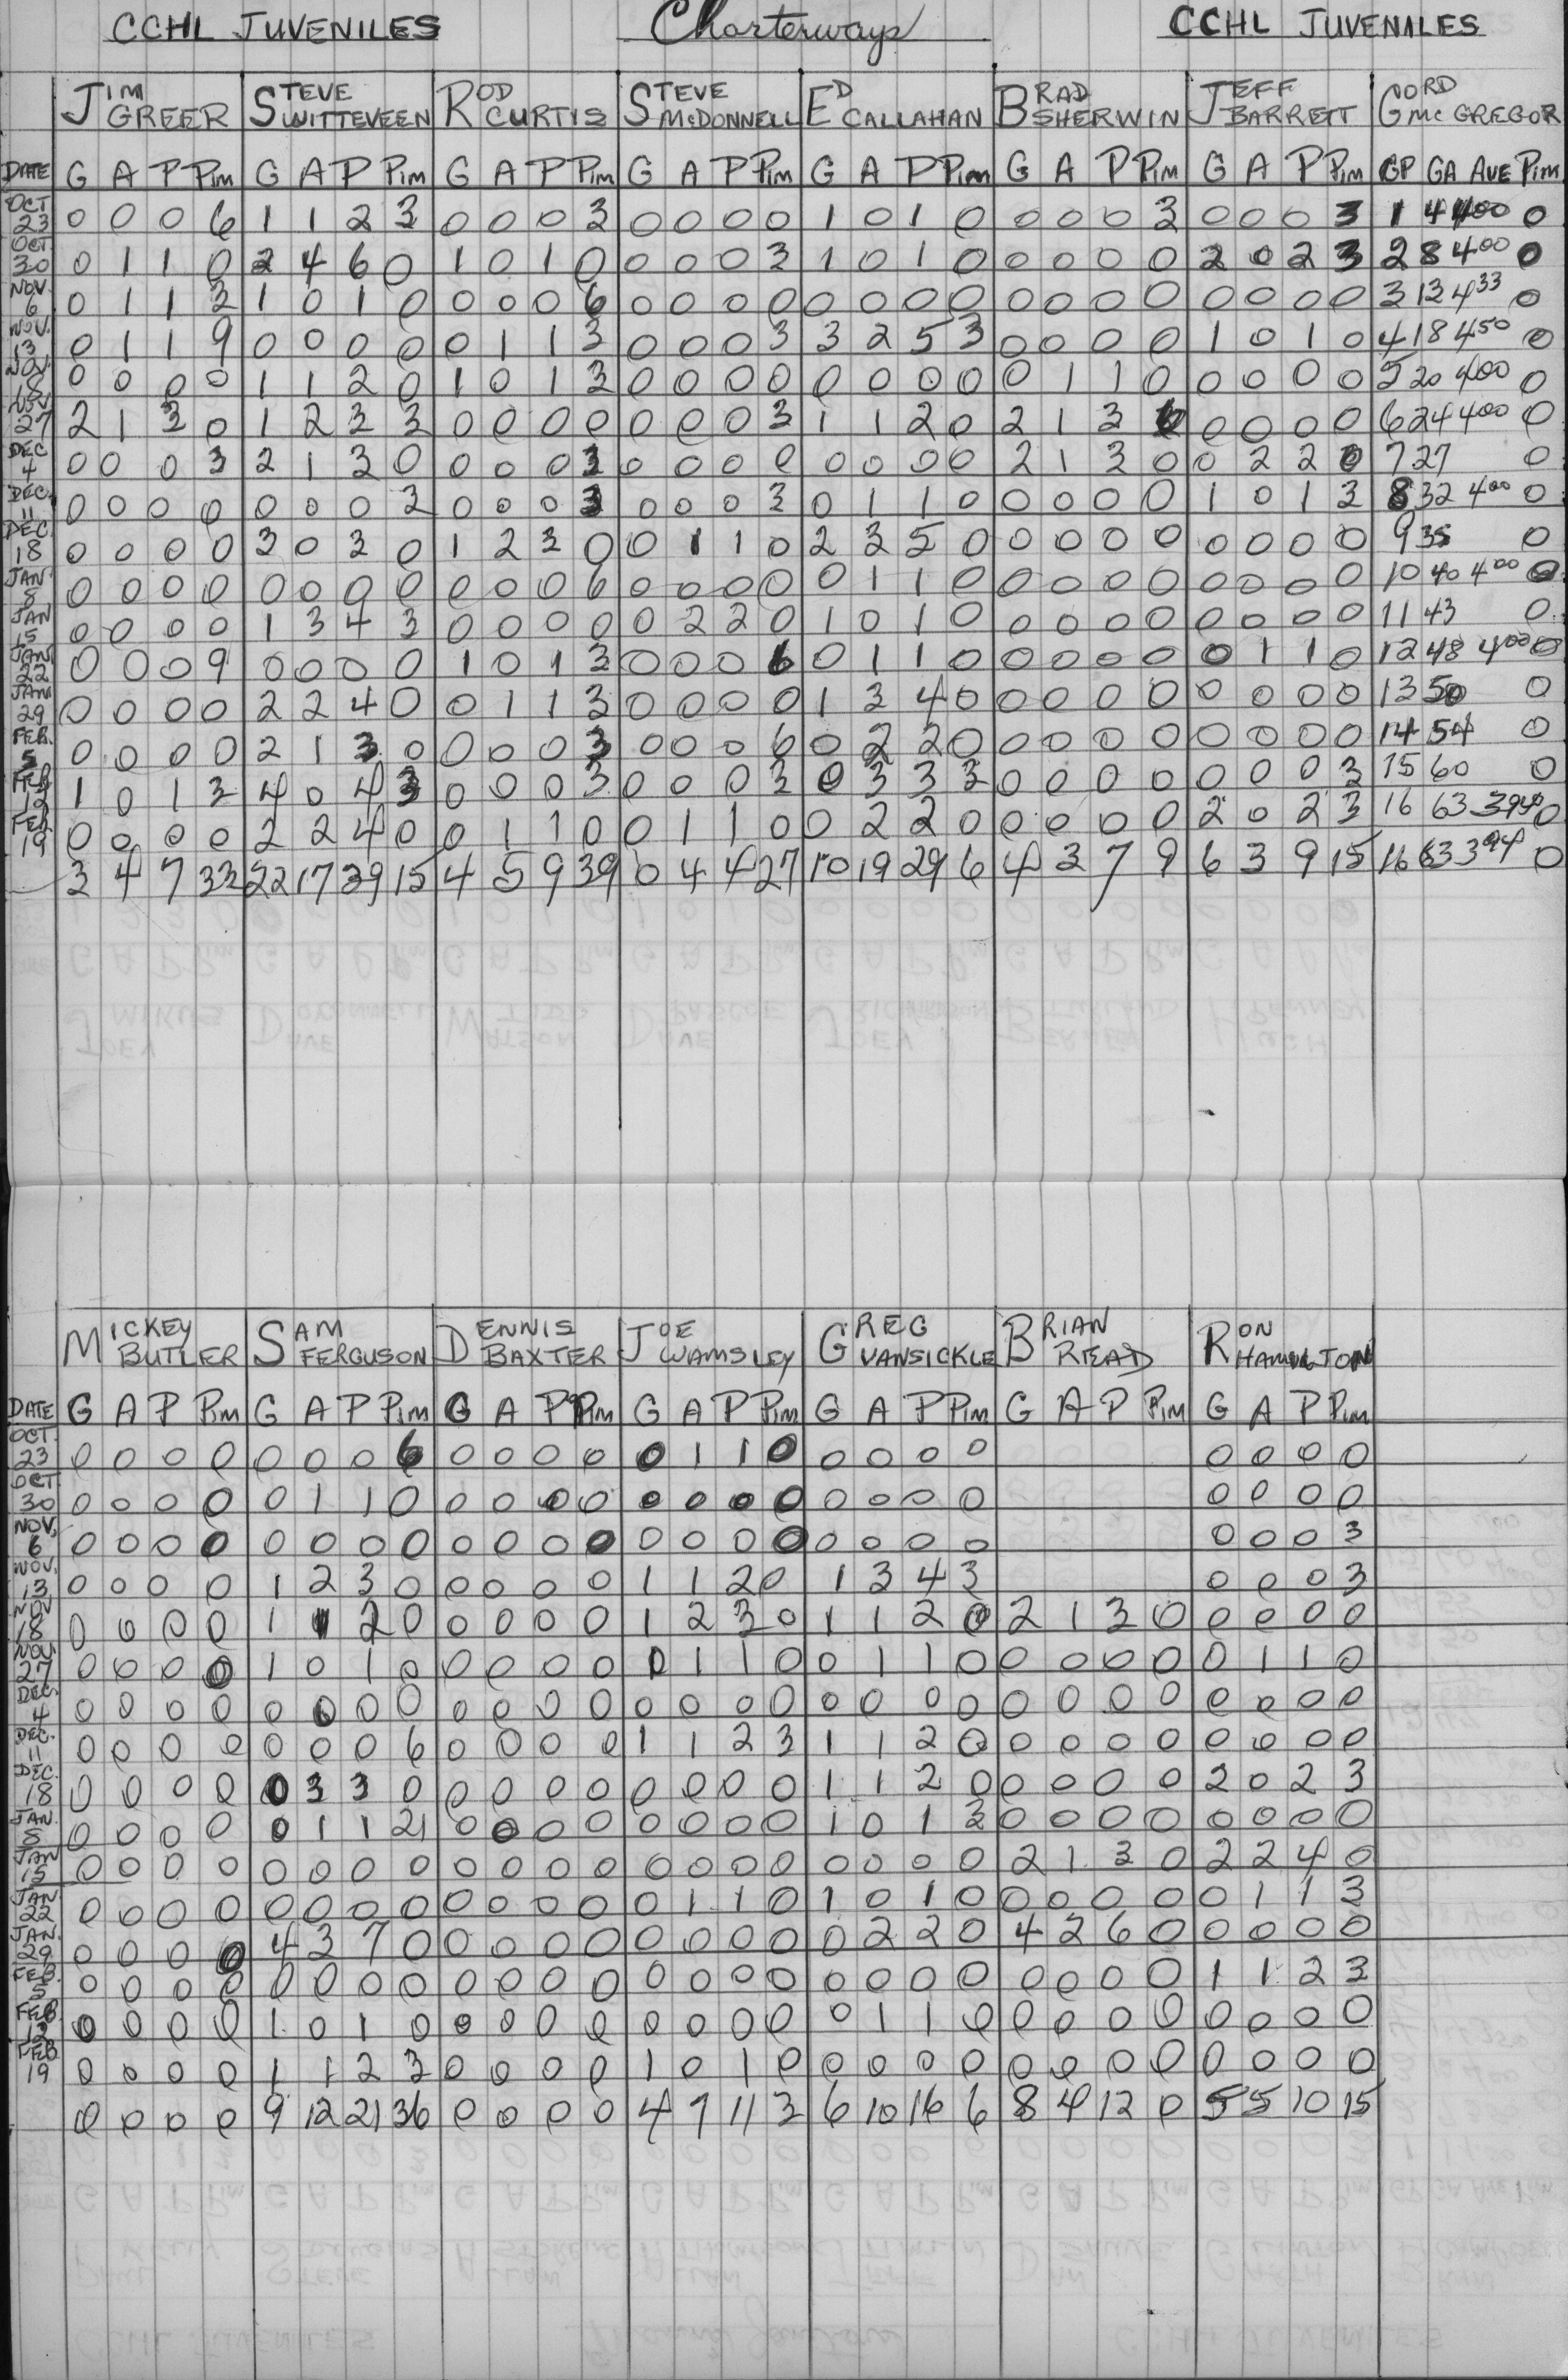 CCHL JUVENILES Charterways CCHL JUVENALES
JIM GREER STEVE WITTEVEEN ROD CURTIS STEVE McDONNELL ED CALLAHAN BRAD SHERWIN JEFF BARRETT GORD McGREGOR
DATE G A P Pim G A P Pim G A P Pim G A P Pim G A P Pim G A P Pim G A P Pim GP GA AVE Pim
OCT 23 0 0 0 6 1 1 2 3 0 0 0 3 0 0 0 0 1 0 1 0 0 0 0 3 0 0 0 3 1 4 400 0
OCT 30 0 1 1 0 2 4 6 0 1 0 1 0 0 0 0 3 1 0 1 0 0 0 0 0 2 0 2 3 2 8 400 0
NOV. 6 0 1 1 3 1 0 1 0 0 0 0 6 0 0 0 0 0 0 0 0 0 0 0 0 0 0 0 0 3 13 433 0
NOV. 13 0 1 1 9 0 0 0 0 0 1 1 3 0 0 0 3 3 2 5 3 0 0 0 0 1 0 1 0 4 18 450 0
NOV. 18 0 0 0 0 1 1 2 0 1 0 1 3 0 0 0 0 0 0 0 0 0 1 1 0 0 0 0 0 5 20 400 0
NOV 27 2 1 3 0 1 2 3 3 0 0 0 0 0 0 0 3 1 1 2 0 2 1 3 6 0 0 0 0 6 24 400 0
DEC 4 0 0 0 3 2 1 3 0 0 0 0 3 0 0 0 0 0 0 0 0 2 1 3 0 0 2 2 0 7 27 0
DEC. 11 0 0 0 0 0 0 0 3 0 0 0 3 0 0 0 3 0 1 1 0 0 0 0 0 1 0 1 3 8 32 400 0
DEC. 18 0 0 0 0 3 0 3 0 1 2 3 0 0 1 1 0 2 3 5 0 0 0 0 0 0 0 0 0 9 35 0
JAN. 5 0 0 0 0 0 0 0 0 0 0 0 6 0 0 0 0 0 1 1 0 0 0 0 0 0 0 0 0 10 40 400 0
JAN 15 0 0 0 0 1 3 4 3 0 0 0 0 0 2 2 0 1 0 1 0 0 0 0 0 0 0 0 0 11 43 0
JAN 22 0 0 0 9 0 0 0 0 1 0 1 3 0 0 0 6 0 1 1 0 0 0 0 0 0 1 1 0 12 48 400 0
JAN 29 0 0 0 0 2 2 4 0 0 1 1 3 0 0 0 0 1 3 4 0 0 0 0 0 0 0 0 0 13 50 0
FEB. 5 0 0 0 0 2 1 3 0 0 0 0 3 0 0 0 6 0 2 2 0 0 0 0 0 0 0 0 0 14 54 0
FEB 12 1 0 1 3 4 0 4 3 0 0 0 3 0 0 0 3 0 3 3 3 0 0 0 0 0 0 0 3 15 60 0
FEB 19 0 0 0 0 2 2 4 0 0 1 1 0 0 1 1 0 0 2 2 0 0 0 0 0 2 0 2 3 16 63 394 0
3 4 7 33 22 17 39 15 4 5 9 39 0 4 4 27 10 19 29 6 4 3 7 9 6 3 9 15 16 63 394 0
MICKEY BUTLER SAM FERGUSON DENNIS BAXTER JOE WAMSLEY GREG VANSICKLE BRIAN READ RON HAMILTON
DATE G A P Pim G A P Pim G A P Pim G A P Pim G A P Pim G A P Pim G A P Pim
OCT. 23 0 0 0 0 0 0 0 6 0 0 0 0 0 1 1 0 0 0 0 0 0 0 0 0
OCT. 30 0 0 0 0 0 1 1 0 0 0 0 0 0 0 0 0 0 0 0 0 0 0 0 0
NOV. 6 0 0 0 0 0 0 0 0 0 0 0 0 0 0 0 0 0 0 0 0 0 0 0 3
NOV. 13 0 0 0 0 1 2 3 0 0 0 0 0 1 1 2 0 1 3 4 3 0 0 0 3
NOV 18 0 0 0 0 1 1 2 0 0 0 0 0 1 2 3 0 1 1 2 0 2 1 3 0 0 0 0 0
NOV. 27 0 0 0 0 1 0 1 0 0 0 0 0 0 1 1 0 0 1 1 0 0 0 0 0 0 1 1 0
DEC. 4 0 0 0 0 0 0 0 0 0 0 0 0 0 0 0 0 0 0 0 0 0 0 0 0 0 0 0 0
DEC. 11 0 0 0 0 0 0 0 6 0 0 0 0 1 1 2 3 1 1 2 0 0 0 0 0 0 0 0 0
DEC. 18 0 0 0 0 0 3 3 0 0 0 0 0 0 0 0 0 1 1 2 0 0 0 0 0 2 0 2 3
JAN. 5 0 0 0 0 0 1 1 21 0 0 0 0 0 0 0 0 1 0 1 3 0 0 0 0 0 0 0 0
JAN 15 0 0 0 0 0 0 0 0 0 0 0 0 0 0 0 0 0 0 0 0 2 1 3 0 2 2 4 0
JAN 22 0 0 0 0 0 0 0 0 0 0 0 0 0 1 1 0 1 0 1 0 0 0 0 0 0 1 1 3
JAN. 29 0 0 0 0 4 3 7 0 0 0 0 0 0 0 0 0 0 2 2 0 4 2 6 0 0 0 0 0
FEB. 5 0 0 0 0 0 0 0 0 0 0 0 0 0 0 0 0 0 0 0 0 0 0 0 0 1 1 2 3
FEB 12 0 0 0 0 1 0 1 0 0 0 0 0 0 0 0 0 0 1 1 0 0 0 0 0 0 0 0 0
FEB 19 0 0 0 0 1 1 2 3 0 0 0 0 1 0 1 0 0 0 0 0 0 0 0 0 0 0 0 0
0 0 0 0 9 12 21 36 0 0 0 0 4 7 11 3 6 10 16 6 8 4 12 0 5 5 10 15